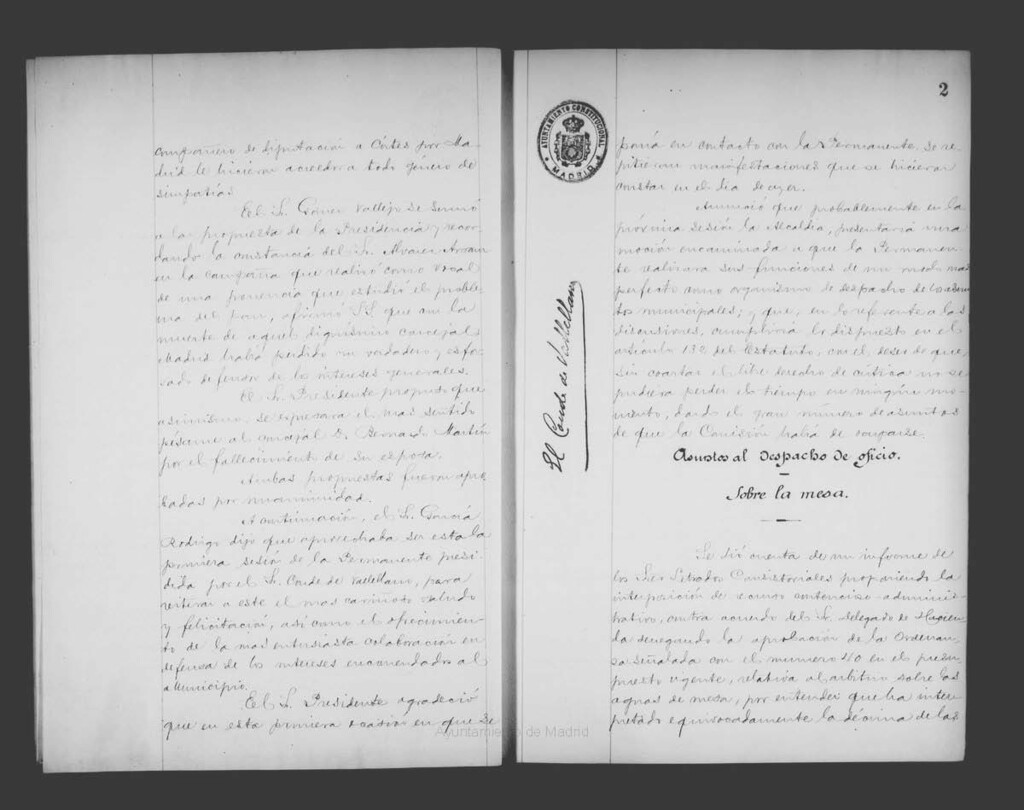 compañero de diputación a Córtes por Ma-
drid le hicieron acreedor a todo género de
simpatías.
El Sr. Gómez Vallejo se sumó
a la propuesta de la Presidencia y recor-
dando la constancia del Sr. Alvarez Arranz
en la campaña que realizó como Vocal
de una ponencia que estudió el proble-
ma del pan, afirmó S.S. que con la
muerte de aquel dignísimo concejal
habia perdido un verdadero y esfor-
zado defensor de los intereses generales.
El Sr. Presidente propuso que
asimismo, se expresara el mas sentido
pésame al concejal D. Bernardo Martín
por el fallecimiento de su esposa.
Ambas propuestas fueron apro-
badas por unanimidad.
A continuación, el Sr. García
Rodrigo dijo que aprovechaba ser esta la
primera sesión de la Permanente presi-
dida por el Sr. Conde de Vallellano, para
reiterar a este el mas cariñoso saludo
y felicitación, así como el ofrecimien-
to de la mas entusiasta colaboración en
defensa de los intereses encomendados al
Municipio.
El Sr. Presidente agradeció
que en esta primera ocasión en que se
Ayuntamiento de Madrid
AYUNTAMIENTO CONSTITUCIONAL
MADRID
El Conde de Vallellano
2
ponía en contacto con la Permanente, se re-
pitieran manifestaciones que se hicieran
constar en el dia de ayer.
Anunció que probablemente en la
próxima sesión la Alcaldía, presentaría una
moción encaminada a que la Permanen-
te realizara sus funciones de un modo mas
perfecto como organismo de despacho de los asun-
tos municipales; y que, en lo referente a las
discusiones, cumpliría lo dispuesto en el
artículo 132 del Estatuto, con el deseo de que,
sin coartar el libre derecho de crítica no se
pudiera perder el tiempo en ningún mo-
mento, dado el gran número de asuntos
de que la Comisión había de ocuparse.
Asuntos al despacho de oficio.
Sobre la mesa.
Se dió cuenta de un informe de
los Sres Letrados Consistoriales proponiendo la
interposición de recurso contencioso-adminis-
trativo, contra acuerdo del Sr. delegado de Hacien-
da denegando la aprobación de la Ordenan-
za señalada con el número 40 en el presu-
puesto vigente, relativa al arbitrio sobre las
aguas de mesa, por entender que ha inter-
pretado equivocadamente la décima de las